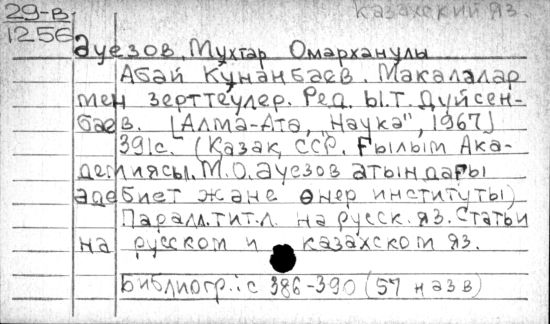 29-в
1256
Казахский яз.
Әуезов, Мухтар Омарханулы
Абай Кунанбаев. Макалалар
мен зерттеулер. Ред. Ы.Т. Дуйсен-
баев. [Алма-Ата, "Наука", 1967]
391с. (Казак, ССР. Ғылым Ака-
демиясы. М.О. Әуезов атындағы
әдебиет және өнер институты)
Паралл. тит. л. на русск. яз. Статьи
на русском и казахском яз.
Библиогр.: с 386-390 (57 назв)